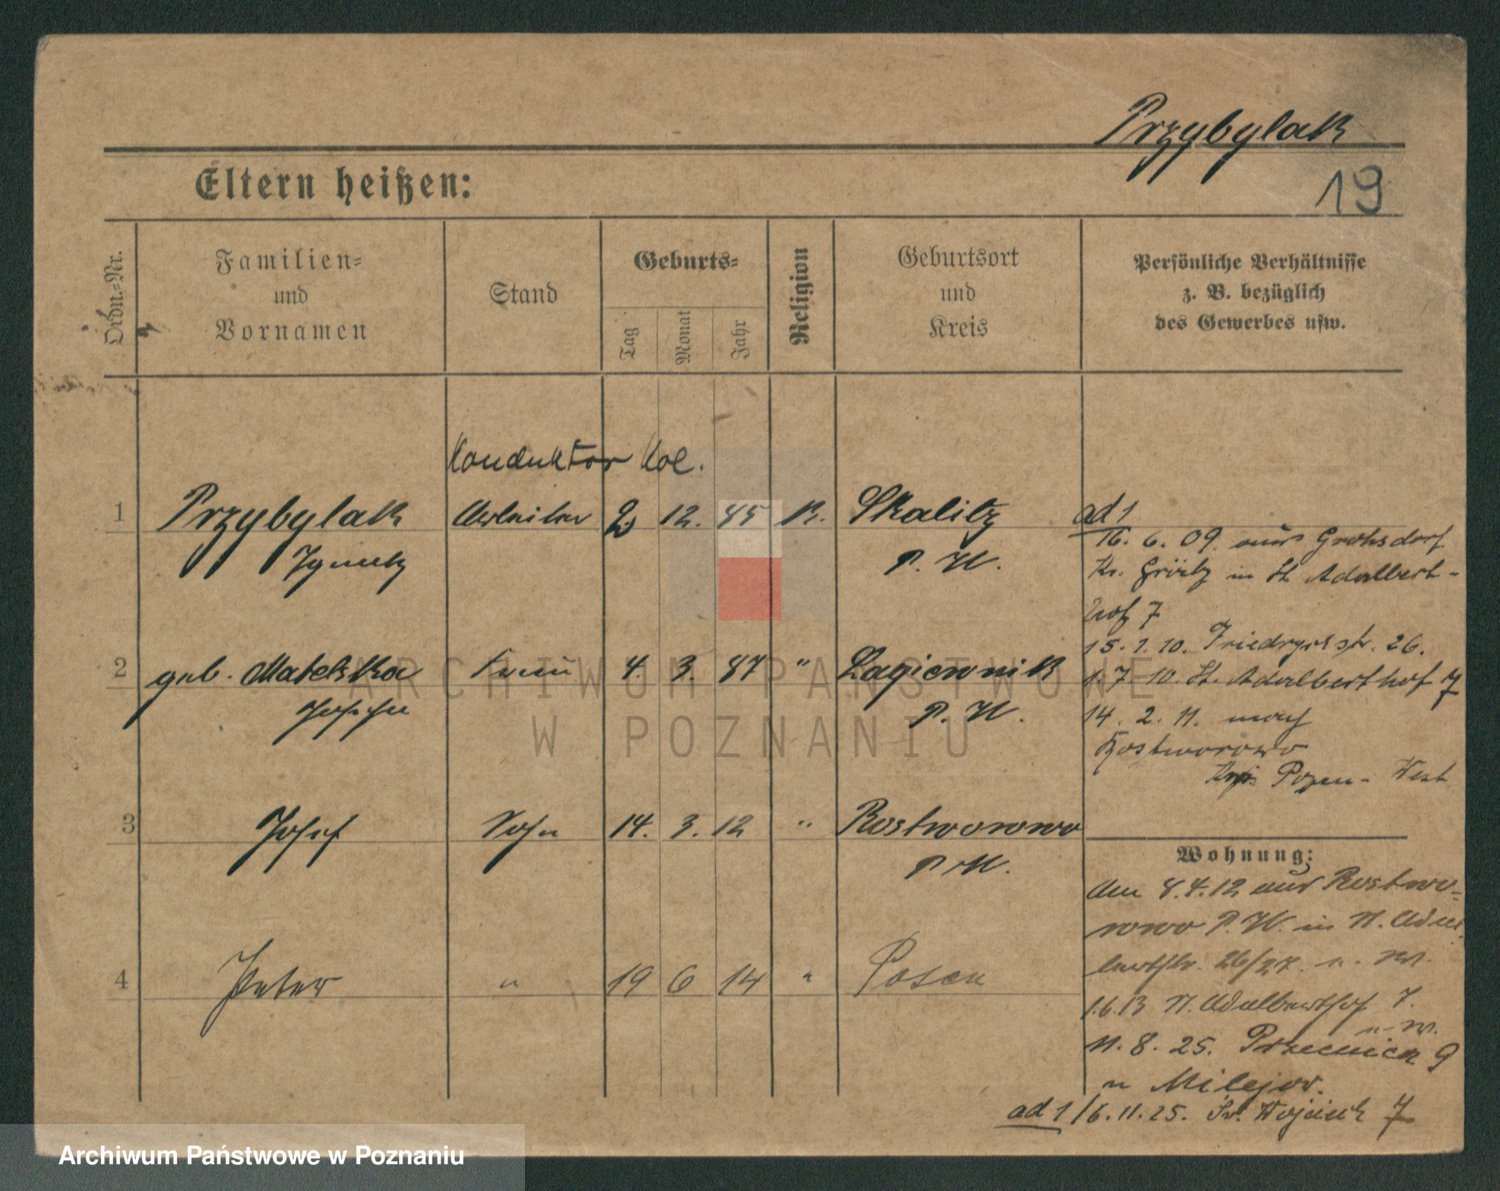 Przybylak
Eltern heißen:
19
Ordn.-Nr.
Familien-
und
Vornamen
Stand
Geburts-
Tag
Monat
Jahr
Religion
Geburtsort
und
Kreis
Persönliche Verhältnisse
z. B. bezüglich
des Gewerbes usw.
Konduktor Kol.
1 Przybylak Arbeiter 2 12. 85 K. Skalitz
Ignatz P. W.
ad 1
16. 6. 09. aus
Kr. Grätz in St Adalbert-
hof 7
15. 1. 10. 26.
2 geb. Matelska Frau 4. 3. 87 " Lagiewnik
Josefa P. W.
1. 7 10. St. Adalberthof 7
14. 2. 11. nach
Rostworowo
Posen-West
3 Josef Sohn 14. 3. 12 " Rostworowo
P. W.
Wohnung:
den 8.4.12 aus Rostwo-
rowo P. W. in St. Adal-
bertstr. 26/27.
4 Peter " 19 6 14 " Posen
1.6.13 St. Adalberthof 7.
11. 8. 25. 9
ad 1/6.11.25. Św. Wojciech 7
ARCHIWUM PAŃSTWOWE
W POZNANIU
Archiwum Państwowe w Poznaniu